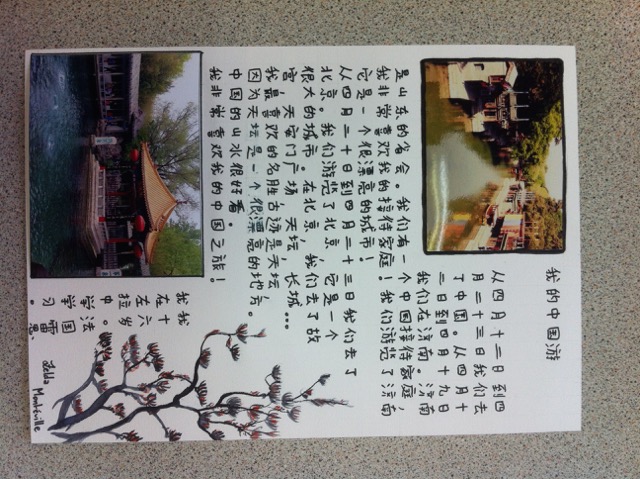 我的中国游
从四月十二日到四
月二十三日我们去
了中国。从四月十
二日到四月十九日
我们在济南。济南
是山东的省会。我们有一个中国接待家庭，
我非常喜欢我的接待家庭！我们游览了济南
它是一个很漂亮的城市！
从四月二十日到四月二十三日我们去了
北京。我们游览了北京，它是一个
很大的城市。在北京，我们去了故
宫，天安门广场，天坛，长城...
我最喜欢的名胜古迹是天坛，
因为天坛是一个很漂亮的地方。
中国的山水很好看。
我非常喜欢我的中国之旅！
我十六岁
我在左拉中学学习。